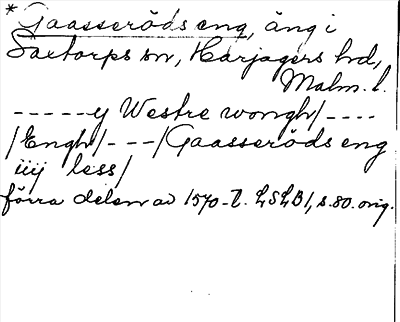 * Gaasseröds eng, äng i
Saxtorps sn, Harjagers hd,
Malm. l.
-----y Westre wongh/----
/Engh/---/Gaasseröds eng
iiij less/
förra delen av 1570-t. LSLB1, s.80. orig.